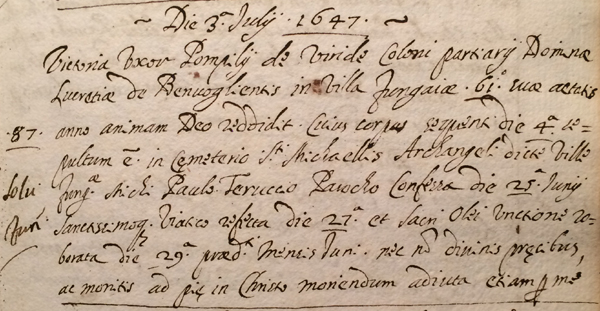 ~ Die 3ᵃ Julij 1647. ~
Victoria Uxor Pompilij de Viride Coloni partiarij Dominæ
Lucretiæ de Benvoglientis in Villa Jungaiæ .61.° suæ ætatis
.87. anno animam Deo reddidit. Cuius corpus sequent̃ die 4ᵃ se=
pultum ẽ in Cemeterio Sᵗⁱ Michaellis Archangeli dictæ Villæ
Solu Jungᵃᵉ Michi Paulo Feruccio Parocho Confessa die 25ᵃ Junij
Jun̄ Sanctissimoq; Viatico refecta die 27ᵃ et Sacri Olei Unctione ro=
borata die 29ᵃ præd.ᵗⁱ Mensis Juni. nec nõ divinis pręcibus,
ac monitis ad pię in Christo moriendum adiuta etiam ꝑ me